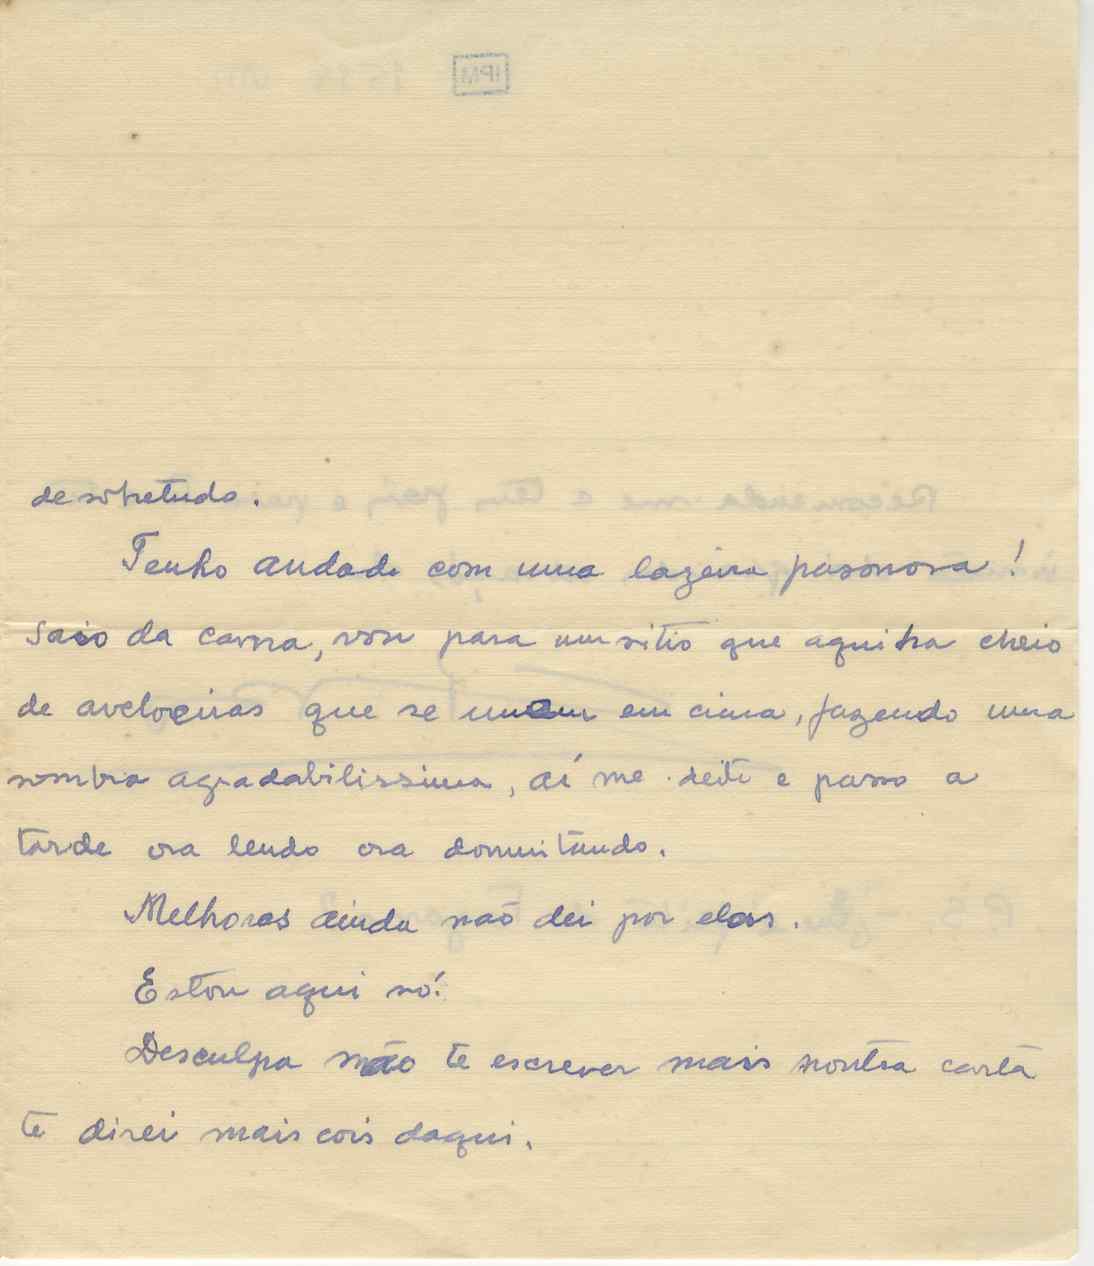 de sobretudo.
Tenho andado com uma lazeira pasonosa!
Saio da cama, vou para um sitio que aqui ha cheio
de aveloeiras que se unem em cima, fazendo uma
sombra agradabilissima, aí me deito e passo a
tarde ora lendo ora dormitando.
Melhoras ainda não dei por elas.
Estou aqui só!
Desculpa não te escrever mais noutra carta
te direi mais cois daqui.